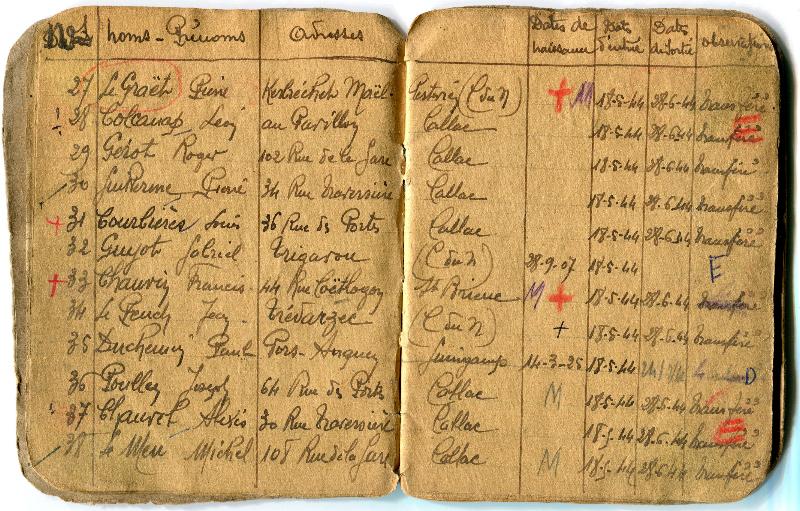 Noms - Prénoms Adresses Dates de naissance Date d'entrée Date de sortie observations
27 Le Graët Pierre Kerléchets Maël- Pestivien (C du N) + M 18-5-44 28-6-44 transféré
28 au Pavillon Callac 18-5-44 28-6-44 transféré
29 Gérot Roger 102 Rue de la Gare Callac 18-5-44 28-6-44 transféré
30 Pierre 34 Rue Traversière Callac 18-5-44 28-6-44 transféré
+ 31 Courbières Louis 36 Rue des Ports Callac 18-5-44 28-6-44 transféré
32 Guyot Gabriel Trigarou (C du N) 28-9-07 18-5-44 E
+ 33 Chauvin Francis 44 Rue Coëtlogon St Brieuc M + 18-5-44 28-6-44 transféré
34 Jean Trévarzec (C du N) + 18-5-44 28-6-44 transféré
35 Duchemin Paul Pors- Guingamp 14-3-25 18-5-44 D
36 Joseph 64 Rue des Ports Callac M 18-5-44 28-5-44 transféré
37 Chauvel Alexis 30 Rue Traversière Callac 18-5-44 28-6-44 transféré
38 Le Men Michel 108 Rue de la Gare Callac M 18-5-44 28-6-44 transféré